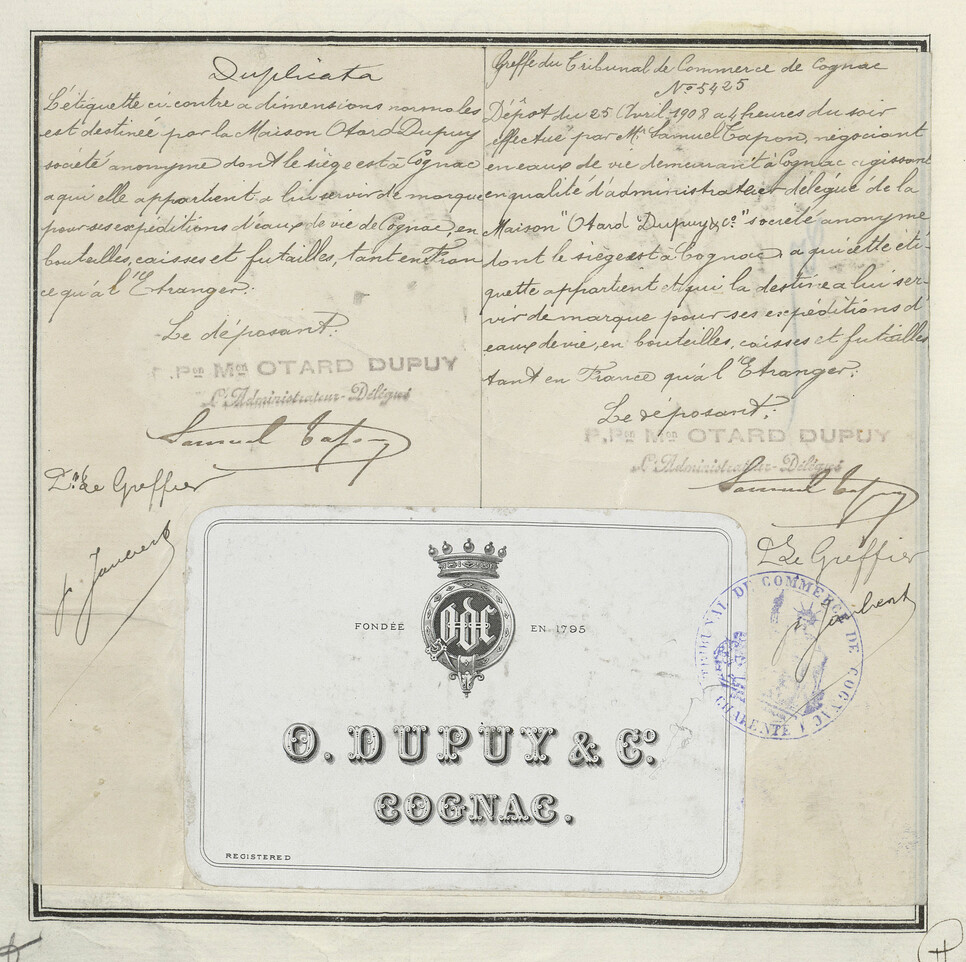 Duplicata
L'étiquette ci contre a dimensions normales
est destinée par la Maison Otard-Dupuy
société anonyme dont le siège est à Cognac
a qui elle appartient a lui servir de marque
pour ses expéditions d'eaux de vie de Cognac, en
bouteilles, caisses et futailles, tant en Fran
ce qu'à l'Etranger.
Le déposant:
P. Pon Mon OTARD DUPUY
L'Administrateur-Délégué
Samuel Tapon
Le Greffier
Greffe du Tribunal de Commerce de Cognac
No 5425
Dépot du 25 Avril 1908 a 4 heures du soir
effectué par Mr Samuel Tapon, négociant
en eaux de vie demeurant à Cognac agissant
en qualité d'administrateur délégué de la
Maison "Otard Dupuy & Co" société anonyme
dont le siège est à Cognac a qui cette éti-
quette appartient et qui la destine a lui ser-
vir de marque pour ses expéditions d'
eaux de vie, en bouteilles, caisses et futailles
tant en France qu'à l'Etranger.
Le déposant:
P. Pon Mon OTARD DUPUY
L'Administrateur-Délégué
Samuel Tapon
Le Greffier
TRIBUNAL DE COMMERCE DE COGNAC
CHARENTE
FONDÉE EN 1795
ODC
O. DUPUY & Co.
COGNAC.
REGISTERED